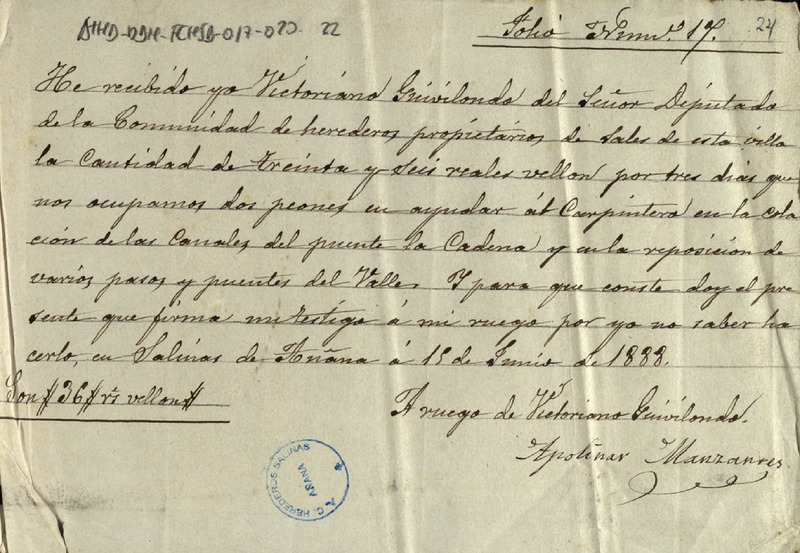 AHD-DAH-FCHSA-017-020 22
Folio Num.º 17. 24
He recibido yo Victoriano Guivilondo del Señor Diputado
de la Comunidad de herederos propietarios de Sales de esta villa
la Cantidad de treinta y seis reales vellon por tres dias que
nos ocupamos dos peones en ayudar ál Carpintero en la colo
cación de las Canales del puente la Cadena y en la reposicion de
varios pasos y puentes del Valle. Y para que conste doy el pre
sente que firma un testigo á mi ruego por yo no saber ha
cerlo, en Salinas de Añana á 15 de Junio de 1888.
Son # 36 # rs vellon #
A ruego de Victoriano Guivilondo.
Apolinar Manzanres
A. C. HEREDEROS SALINAS
AÑANA